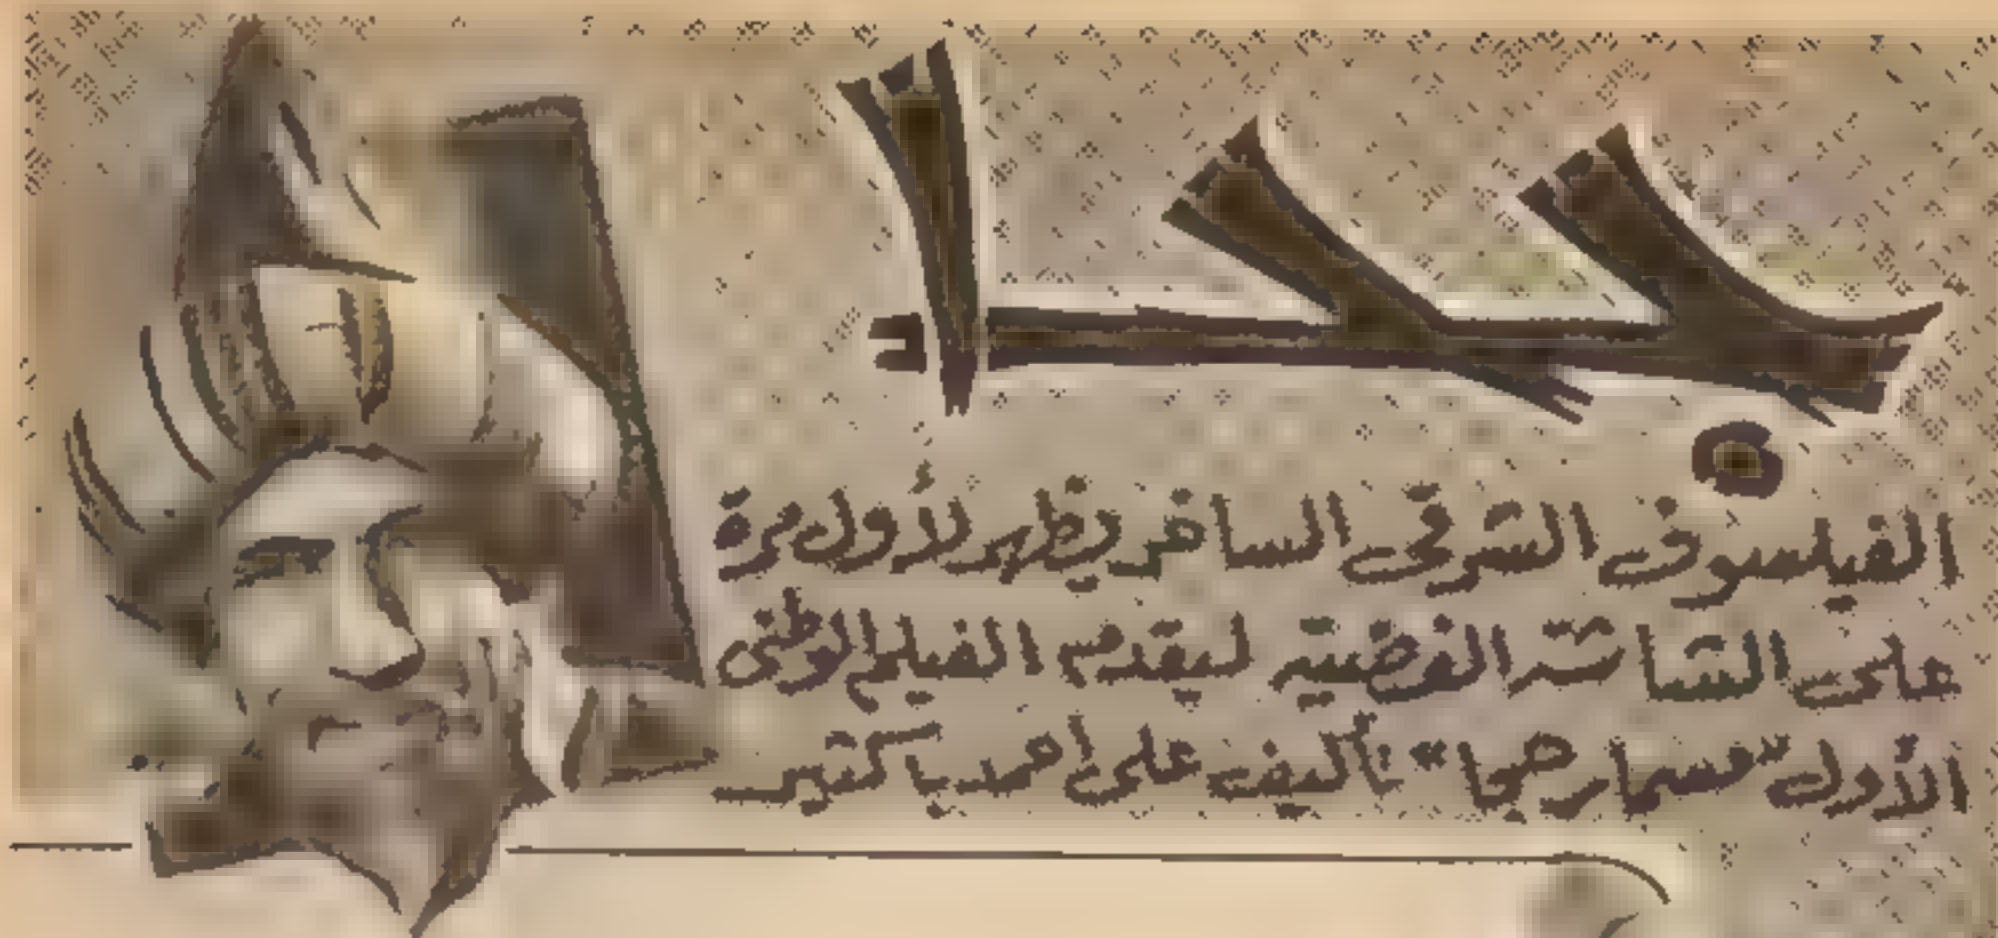 جحا
الفيلسوف الشرقى الساخر يظهر لأول مرة
على الشاشة الفضية ليقدم الفيلم الوطنى
الأول "مسمار جحا" تأليف على أحمد باكثير